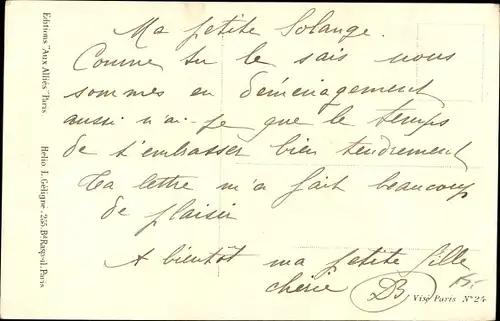 Ma petite Solange.
Comme tu le sais nous
sommes en déménagement
aussi n'ai-je que le temps
de t'embrasser bien tendrement
Ta lettre m'a fait beaucoup
de plaisir
A bientôt ma petite fille
chérie DB
Visé Paris N° 24
Editions "Aux Alliés" Paris
Hélio L. Géligné. 255. Bd Raspail. Paris